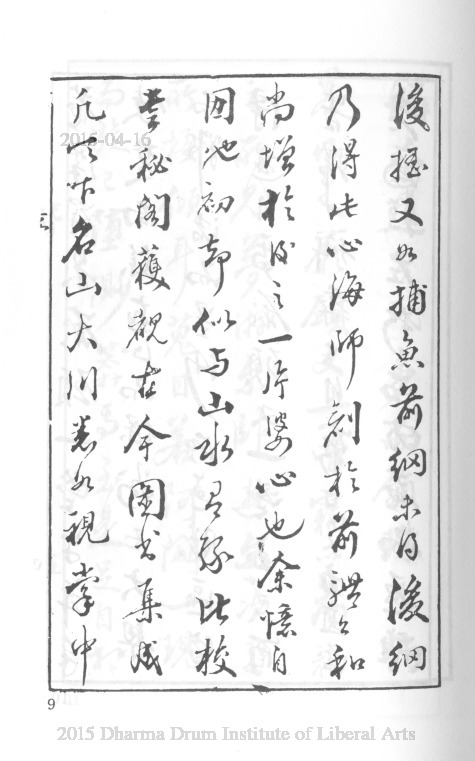 後掩又如捕魚前網未得後網
乃得此心海師創於前體公和
尚增於後之一片婆心也余憶自
因地初却似与山水有緣比校
書秘閣獲觀古今圖书集成
凡天下名山大川悉如視掌中
2015-04-16
9
2015 Dharma Drum Institute of Liberal Arts